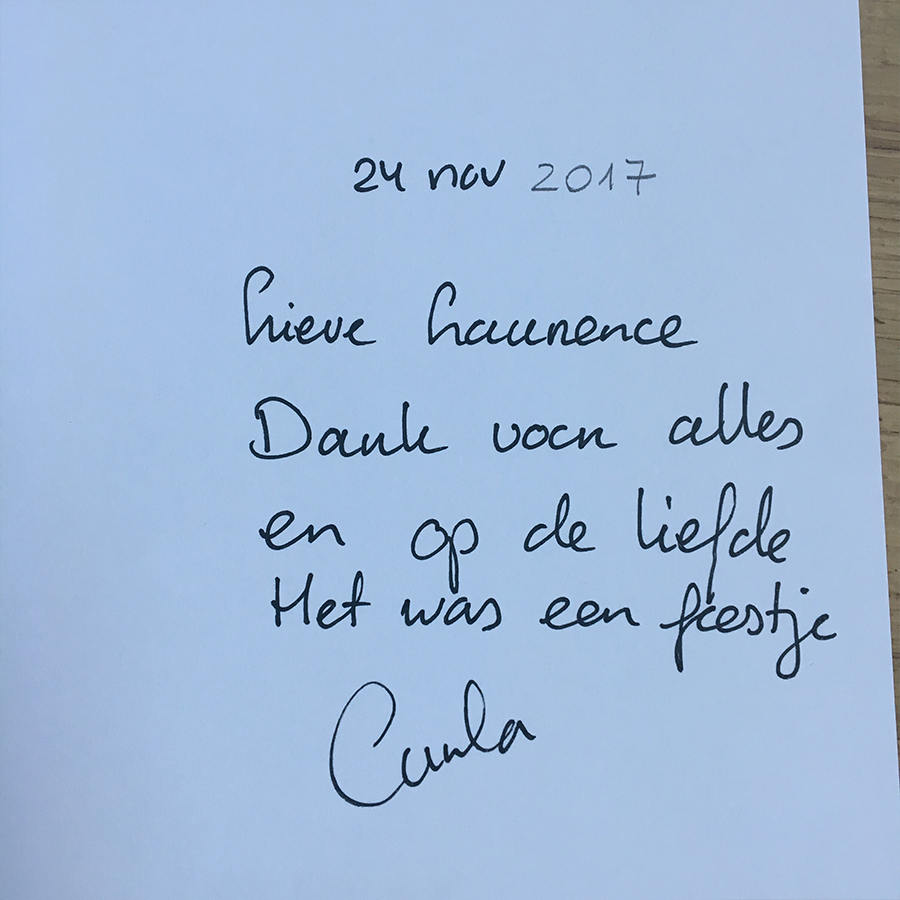 24 nov 2017
Lieve Laurence
Dank voor alles
en op de liefde
Het was een feestje
Carla